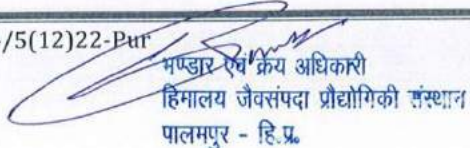 /5(12)22-Pur
भण्डार एवं क्रय अधिकारी
हिमालय जैवसंपदा प्रौद्योगिकी संस्थान
पालमपुर - हि.प्र.